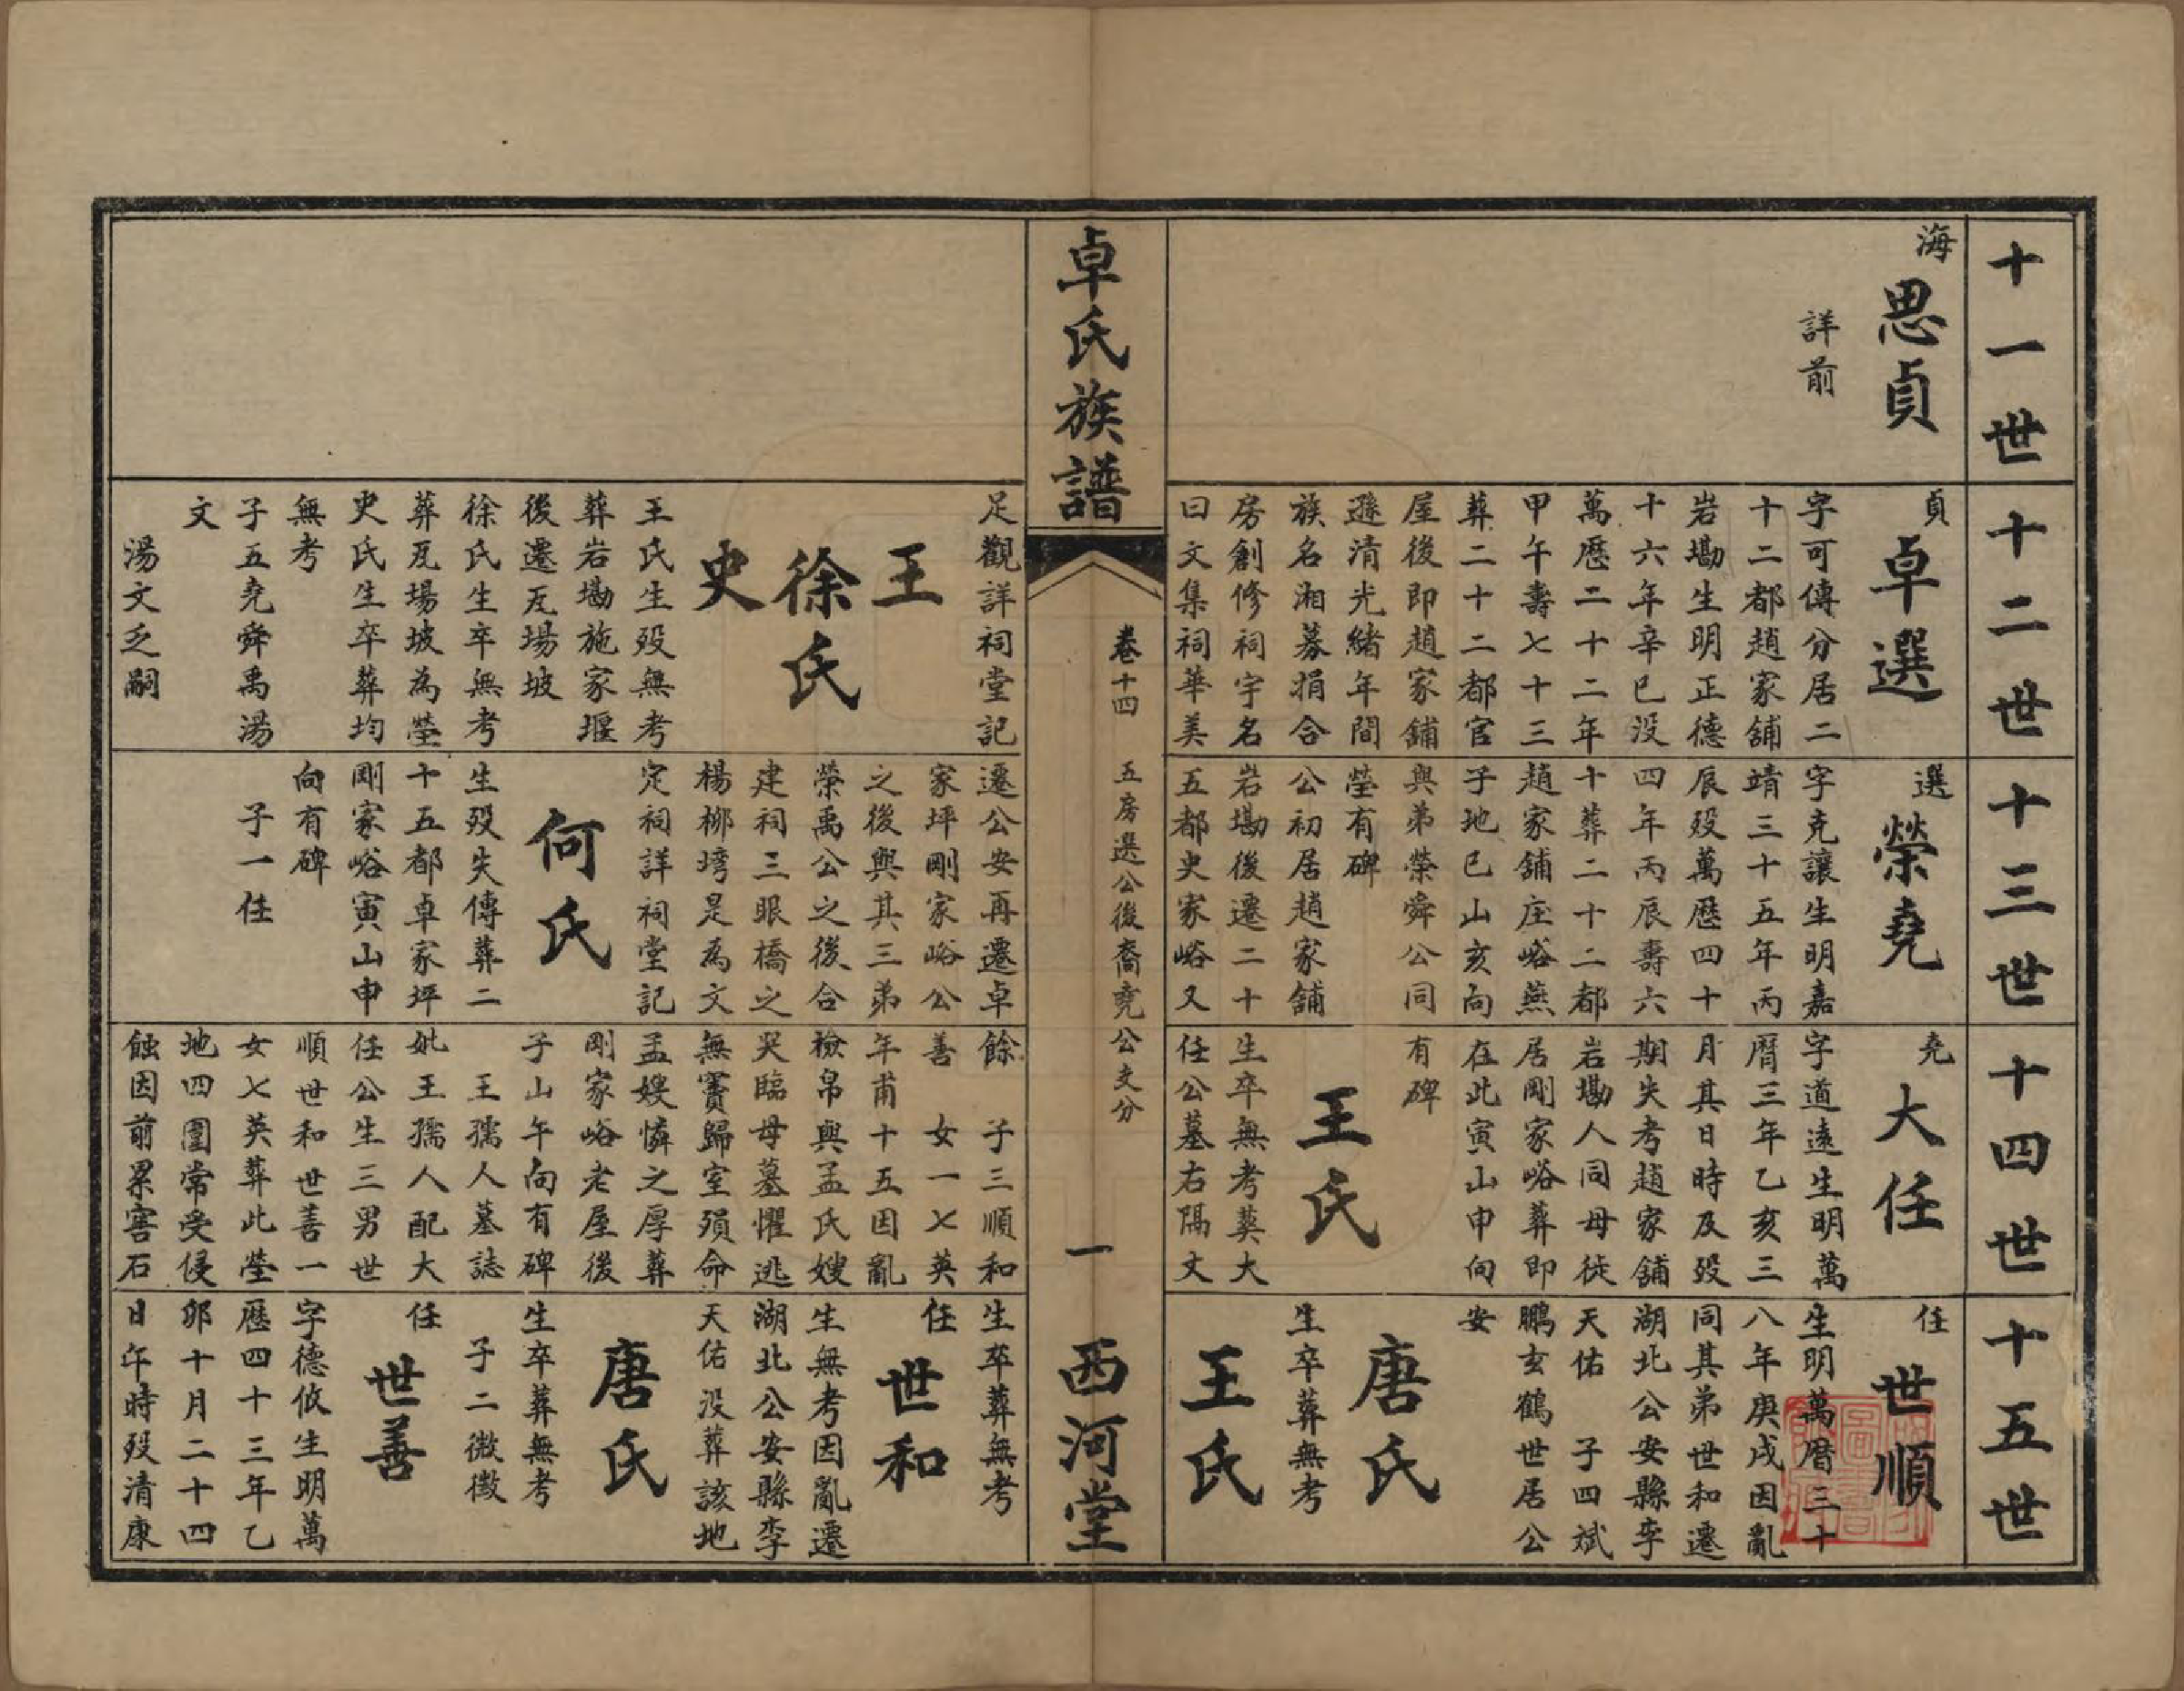 十一世
海
思貞
詳前
十二世
貞
卓選
字可傳分居二
十二都趙家舖
岩墈生明正德
十六年辛巳沒
萬歷二十二年
甲午壽七十三
葬二十二都官
屋後即趙家舖
遜清光緒年間
族名湘募捐合
房創修祠宇名
曰文集祠華美
足觀詳祠堂記
王
徐氏
史
王氏生歿無考
葬岩墈施家堰
後遷瓦場坡
徐氏生卒無考
葬瓦場坡為塋
史氏生卒葬均
無考
子五堯舜禹湯
文
湯文乏嗣
十三世
選
榮堯
字克讓生明嘉
靖三十五年丙
辰歿萬歷四十
四年丙辰壽六
十葬二十二都
趙家舖庄峪燕
子地巳山亥向
與弟榮舜公同
塋有碑
公初居趙家舖
岩墈後遷二十
五都史家峪又
遷公安再遷卓
家坪剛家峪公
之後與其三弟
榮禹公之後合
建祠三眼橋之
楊柳塆是為文
定祠詳祠堂記
何氏
生歿失傳葬二
十五都卓家坪
剛家峪寅山申
向有碑
子一任
十四世
堯
大任
字道遠生明萬
曆三年乙亥三
月其日時及歿
期失考趙家舖
岩墈人同母徙
居剛家峪葬即
在此寅山申向
有碑
王氏
生卒無考葬大
任公墓右隔丈
餘 子三順和
善 女一七英
年甫十五因亂
檢帛與孟氏嫂
哭臨母墓懼逃
無賓歸室殞命
孟嫂憐之厚葬
剛家峪老屋後
子山午向有碑
王孺人墓誌
妣王孺人配大
任公生三男世
順世和世善一
女七英葬此塋
地四圍常受侵
蝕因前累害石
十五世
任
世順
生明萬曆三十
八年庚戌因亂
同其弟世和遷
湖北公安縣李
天佑 子四斌
鵬玄鶴世居公
安
唐氏
生卒葬無考
王氏
生卒葬無考
任
世和
生無考因亂遷
湖北公安縣李
天佑沒葬該地
唐氏
生卒葬無考
子二微徵
任
世善
字德攸生明萬
歷四十三年乙
卯十月二十四
日午時歿清康
卓氏族譜
卷十四 五房選公後裔堯公支分
一
西河堂